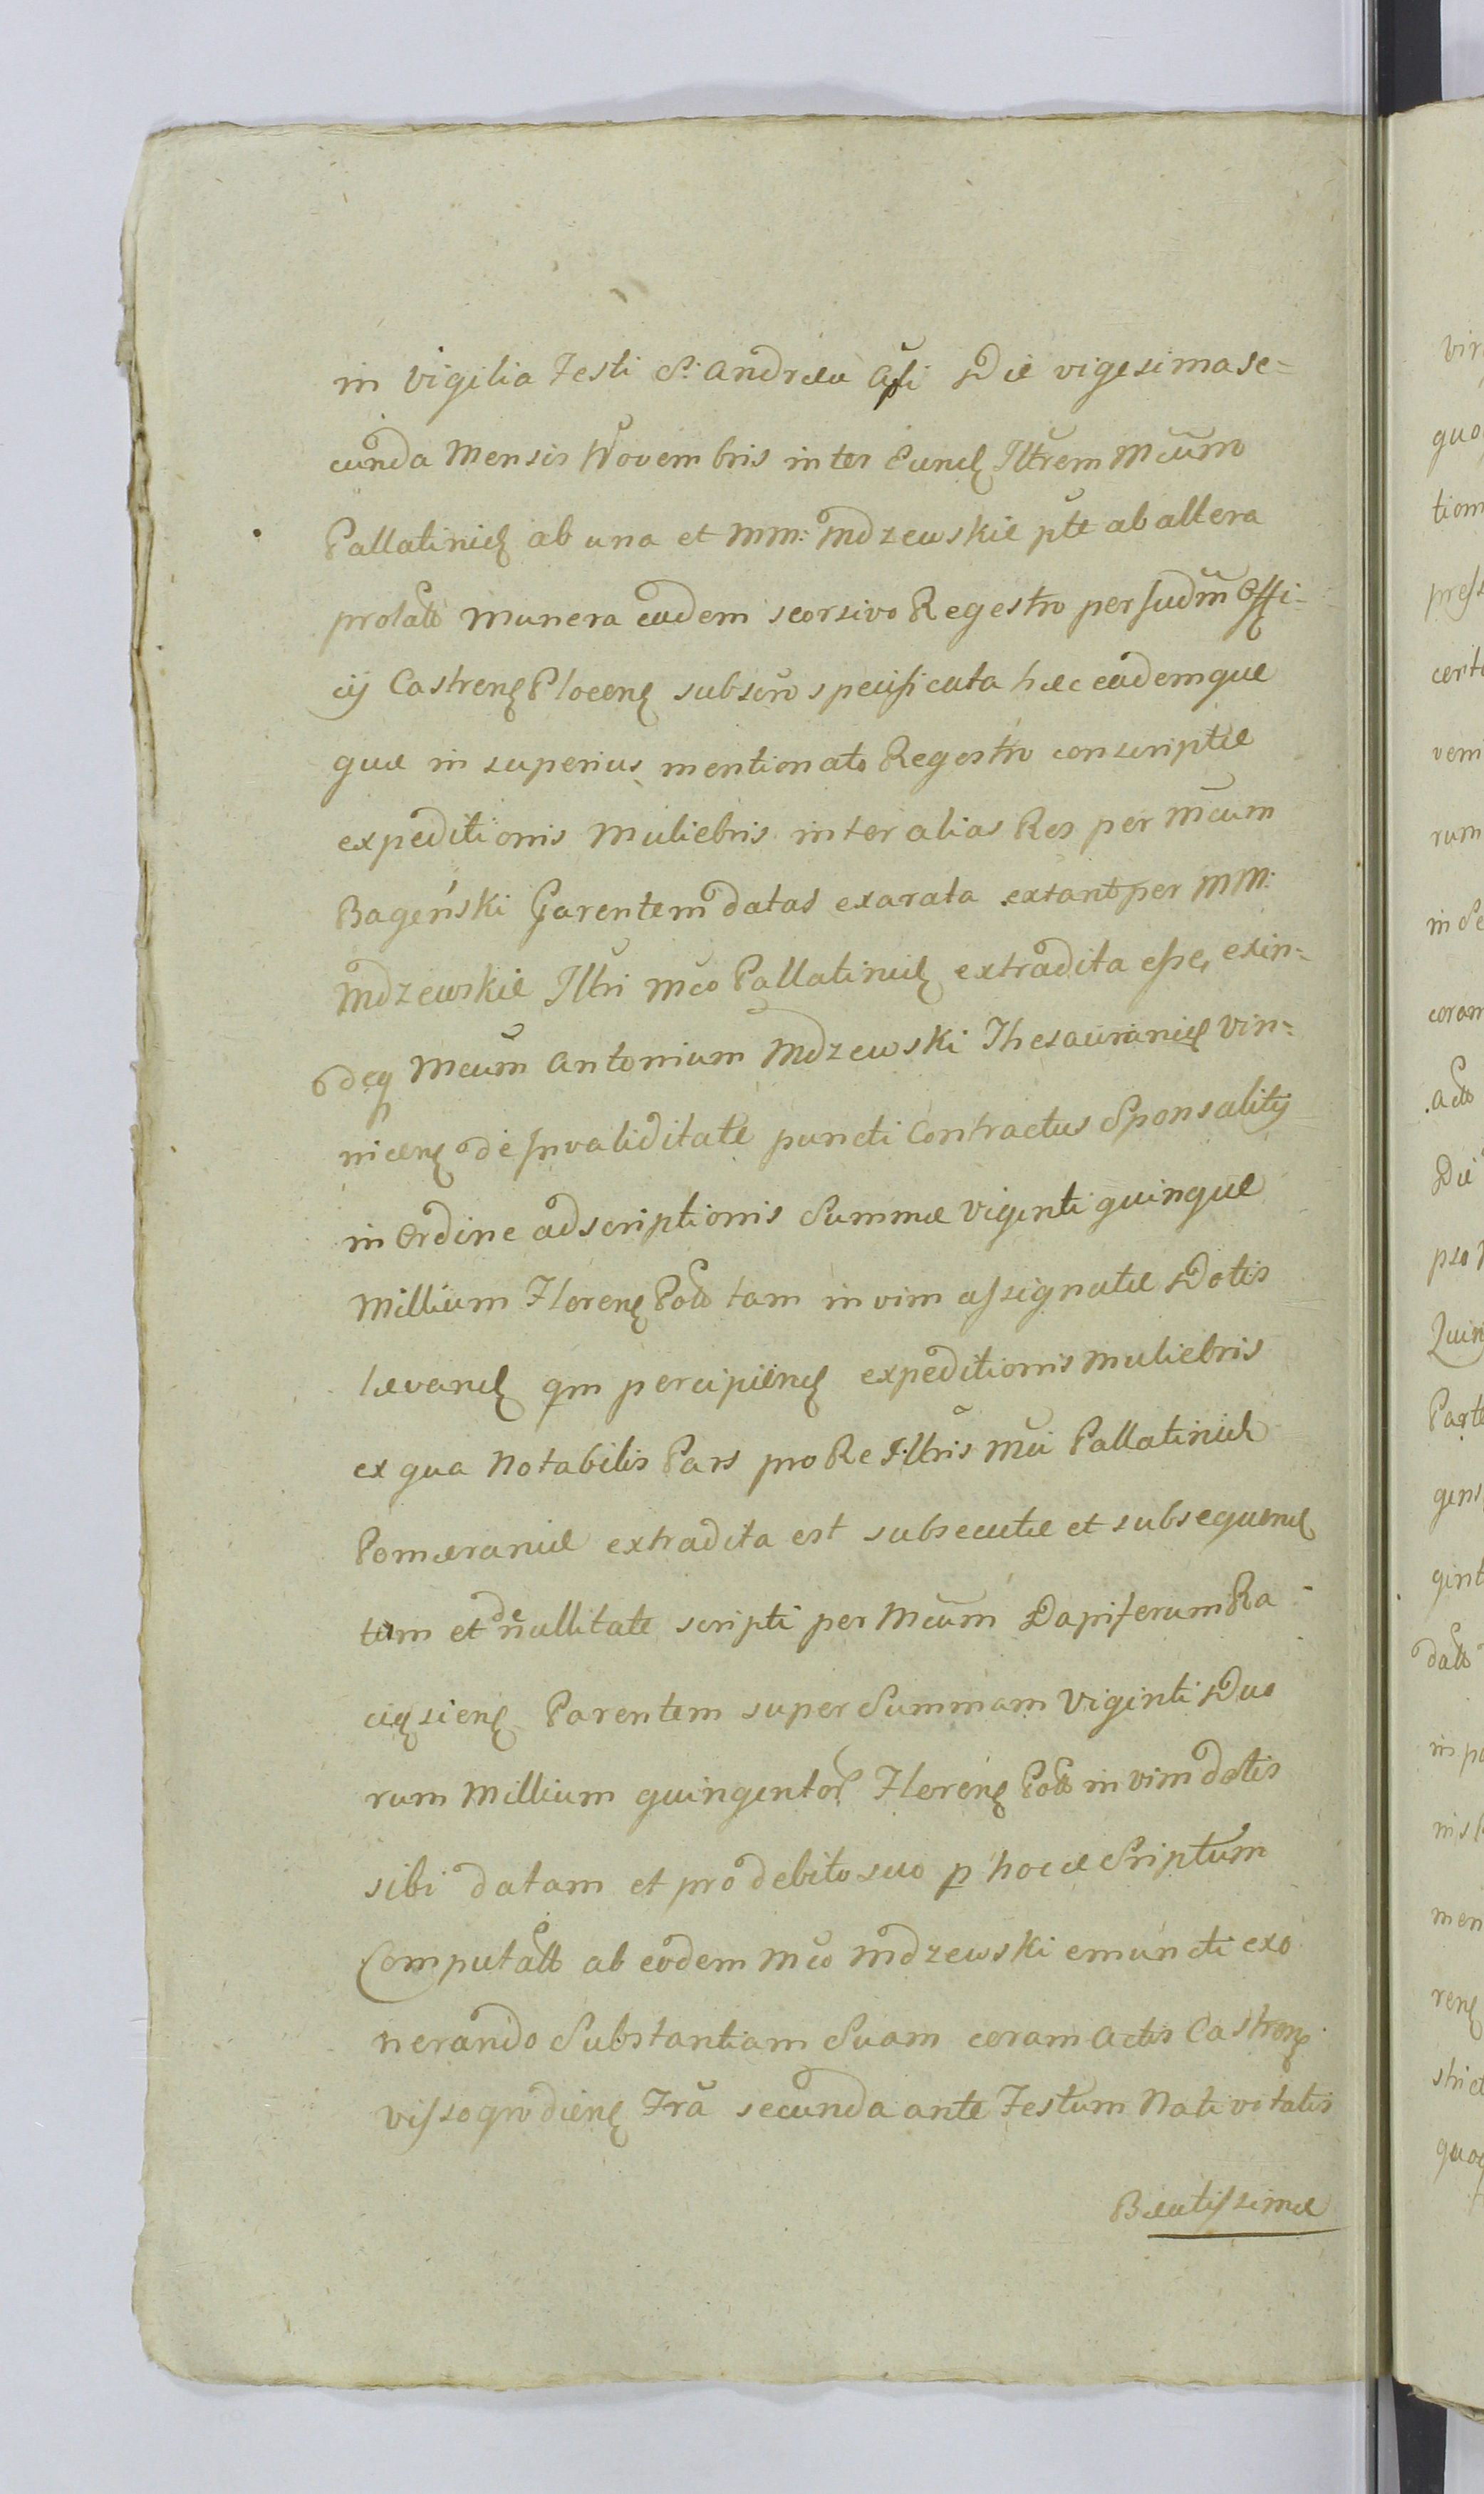 in Vigilia Festi S: Andreæ Apli Die vigesima se=
cunda Mensis Novembris inter Eund Illrem Mcum
Pallatinid ab una et MM: Mdzewskie pte ab altera
prolatt munera eadem seorsivo Regestro per Judm Offi=
cij Castren Plocen subscro specificata hæc eademque
quæ in superius mentionato Regestro conscriptæ
expeditionis Muliebris inter alias Res per Mcum
Bagenski Parentem datas exarata extant per MM:
Mdzewskie Illri Mco Pallatinid extradita esse, exin=
deq Mcum Antonium Mdzewski Thesauranid Vin=
nicen de Invaliditate puncti Contractus Sponsality
in Ordine adscriptionis Summæ Viginti quinque
Millium Floren Poll tam in vim assignatæ Dotis
levand qm percipiend expeditionis Muliebris
ex qua Notabilis Pars pro Re Illris Mci Pallatinid
Pomeraniæ extradita est subsecutæ et subsequend
tum et de nullitate scripti per Mcum Dapiferum Ra=
ciąsien Parentem super Summam Viginti Duo
rum Millium quingentor Floren Poll in vim dotis
sibi datam et pro debito suo p hocce Scriptum
Computatt ab eodem Mco Mdzewski emuncti exo
nerando Substantiam Suam coram Actis Castren
Vissogrodien Fra secunda ante Festum Nativitatis
Beatissimæ